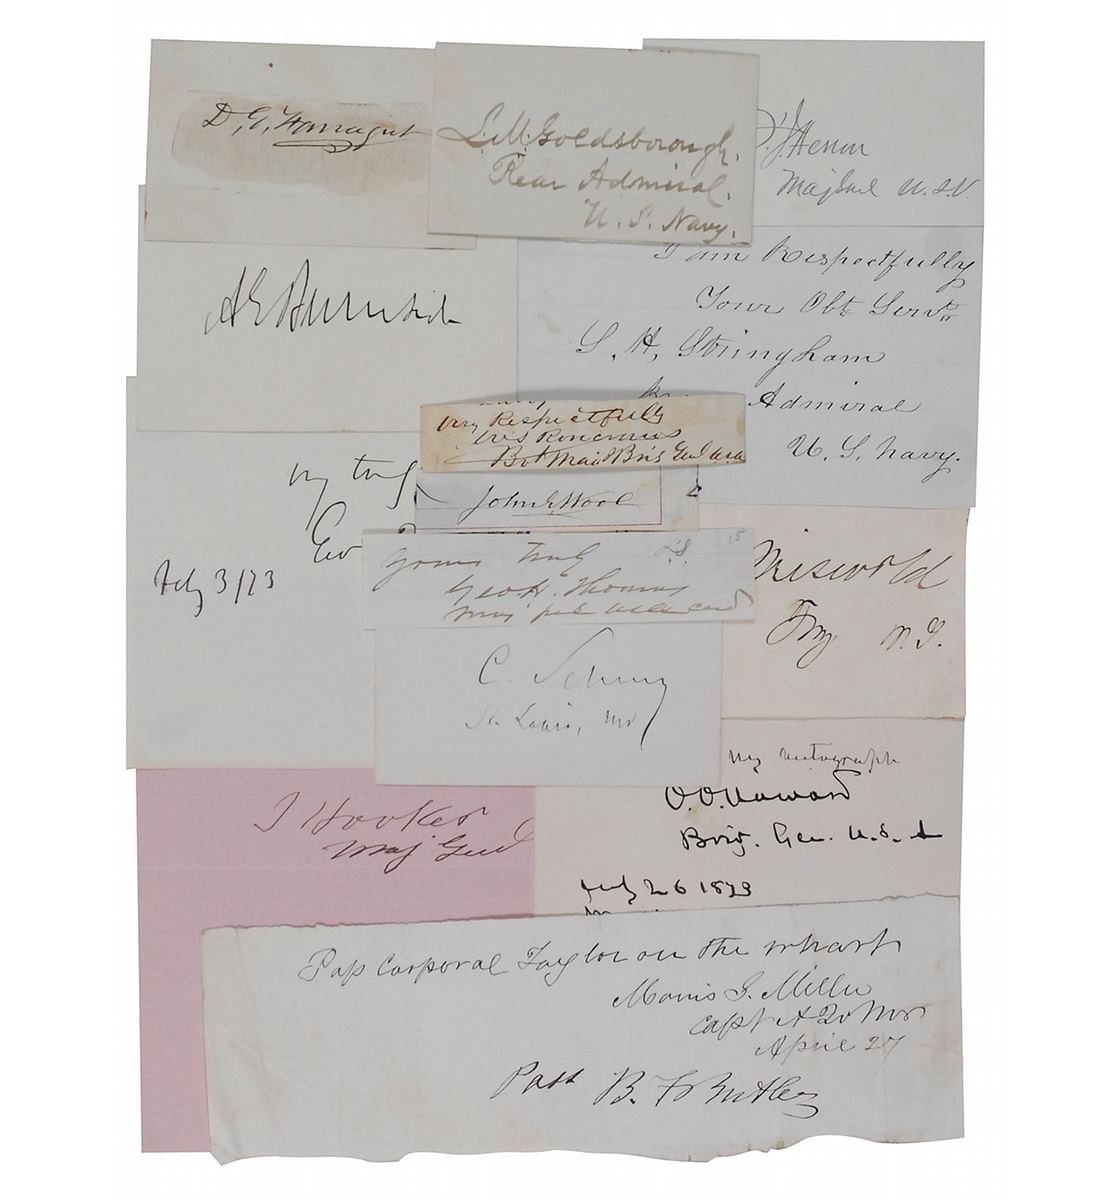 D. G. Farragut
L. M. Goldsborough.
Rear Admiral.
U. S. Navy.
F. J. Herron
Maj Genl U. S. V.
A E Burnside
I am Respectfully
Your Obt Servt
S. H. Stringham
Admiral
U. S. Navy.
Very Respectfully
Bvt Maj & Brig Genl USA
John E Wool
Geo
July 3/73
Yours truly
Geo H. Thomas
Maj Genl USA
Griswold
Troy N. Y.
C. Schurz
St. Louis, Mo
J Hooker
Maj Genl
My autograph
O. O. Howard
Brig. Gen. U. S. A
July 26 1873
Pass Corporal Taylor on the wharf
Morris S. Miller
Capt A Qr Mr
April 27
Pass B. F. Butler